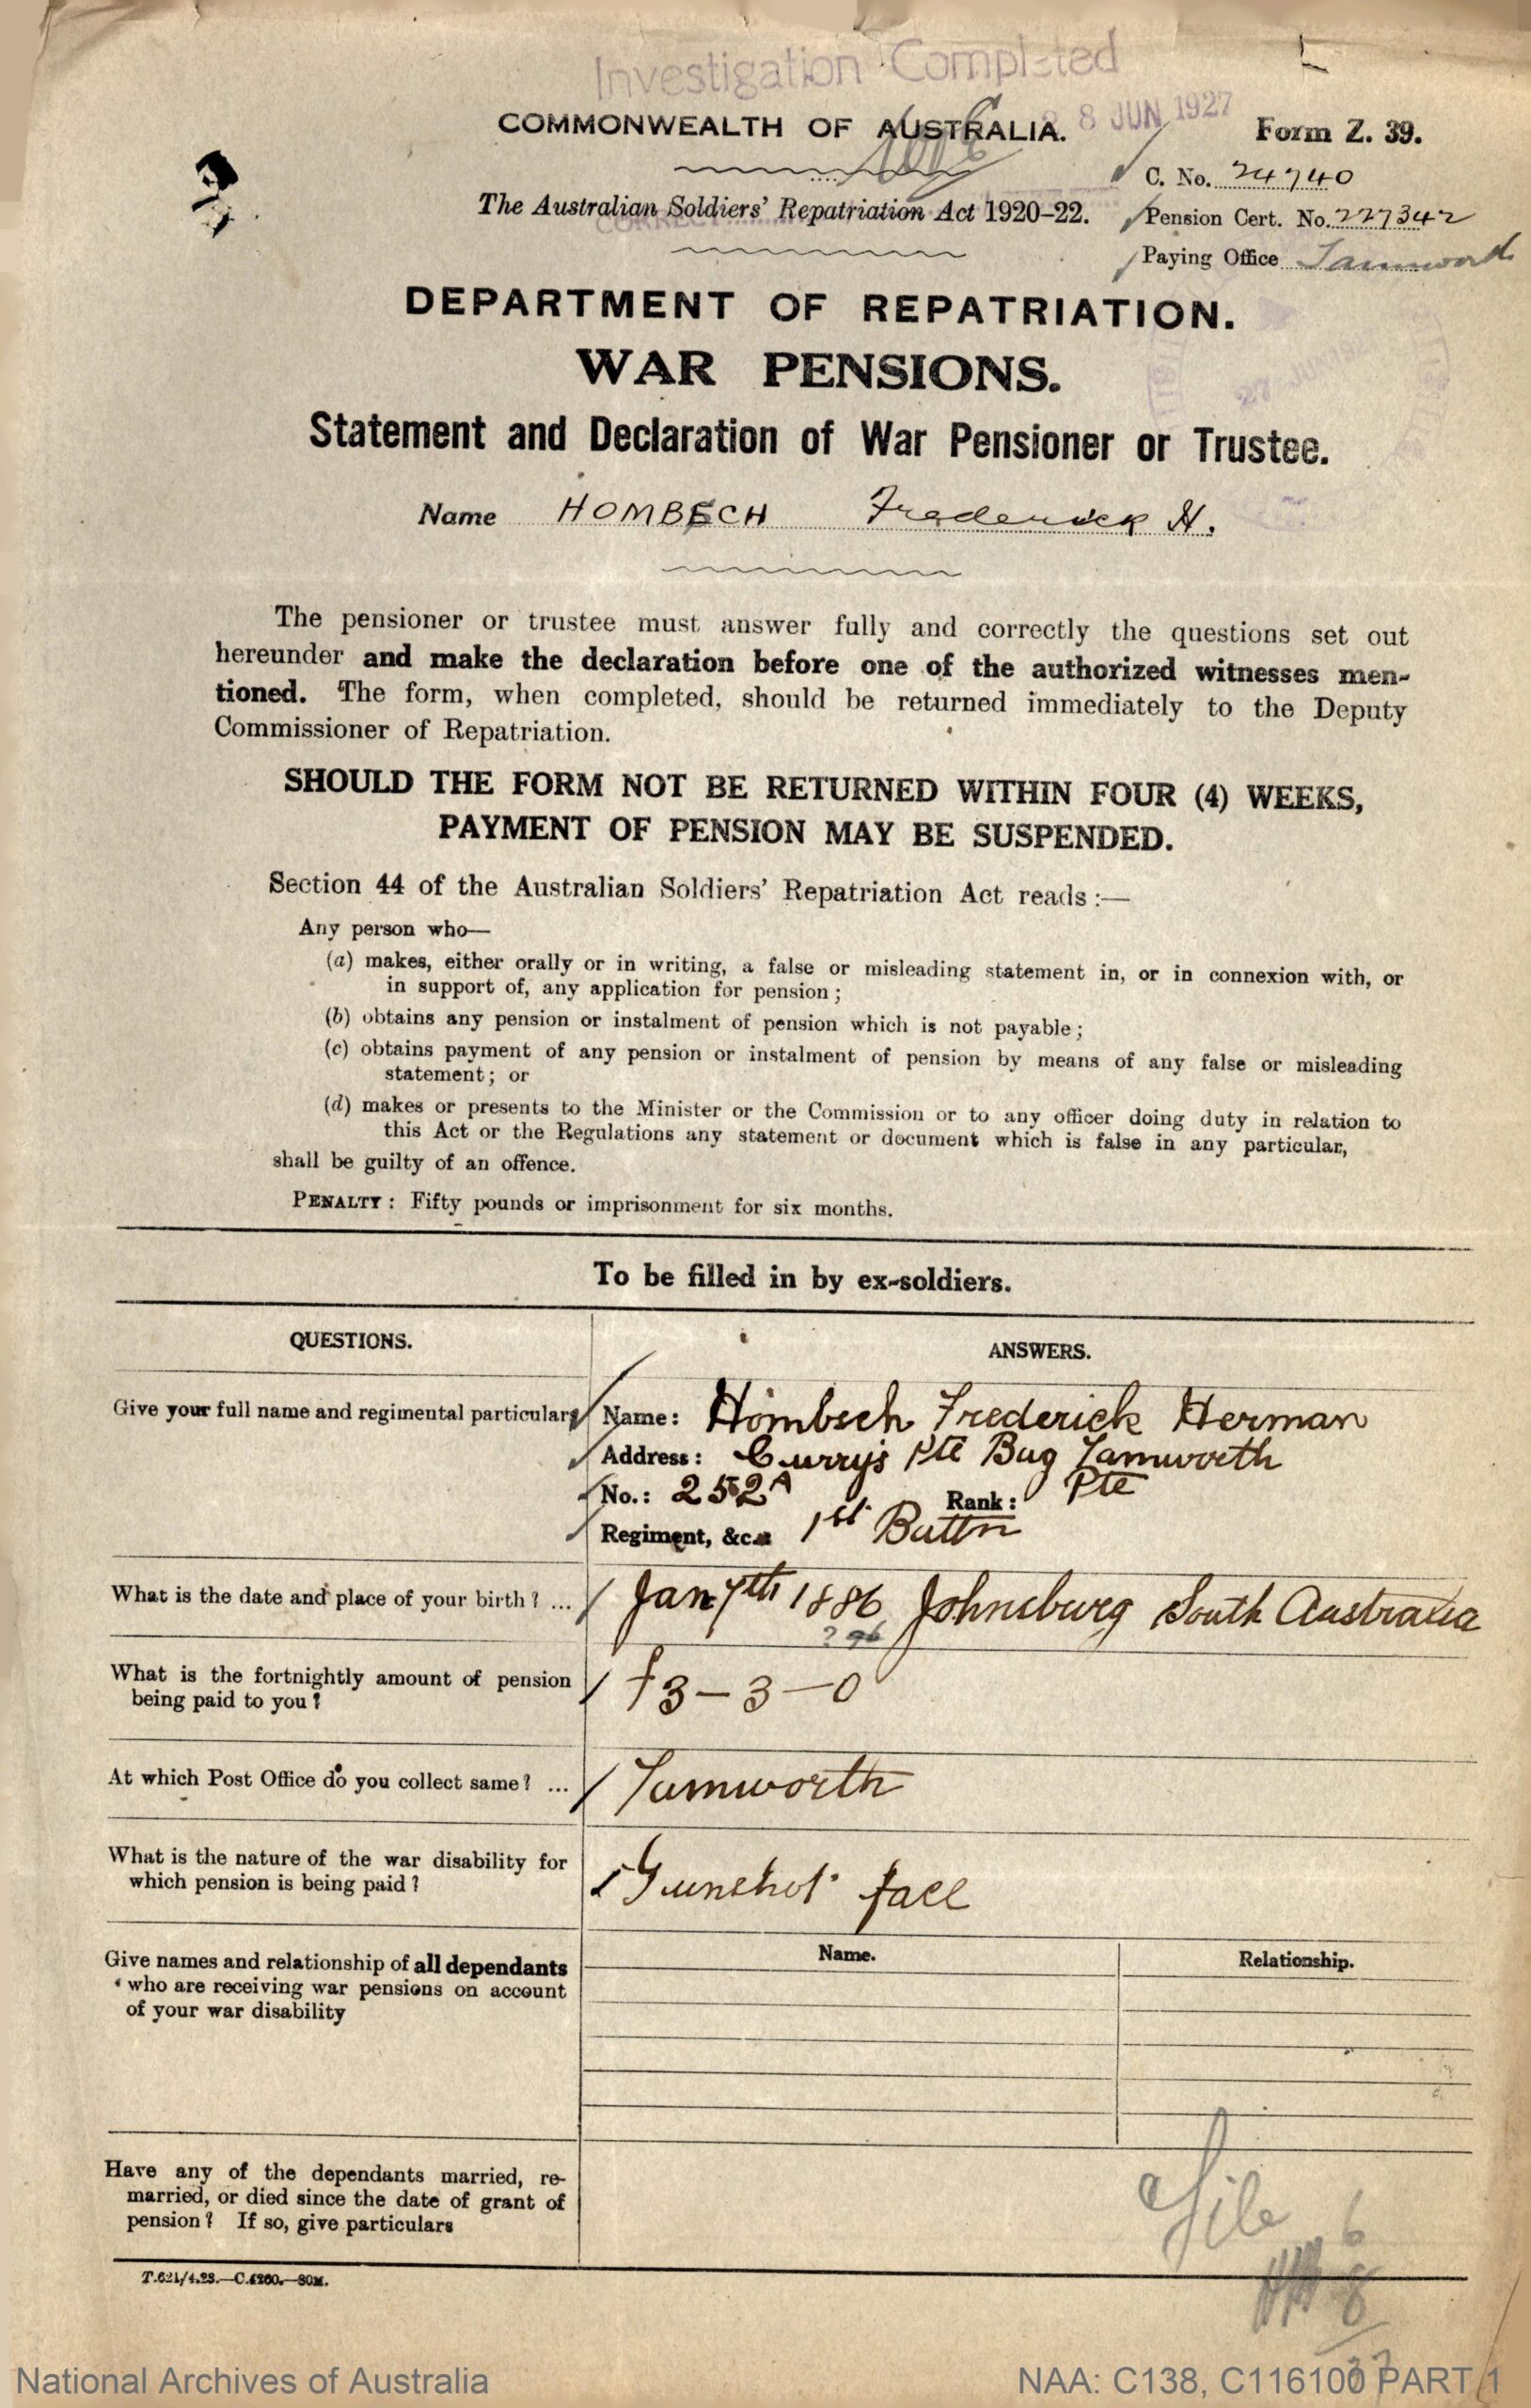 Investigation Completed
8 JUN 1927
COMMONWEALTH OF AUSTRALIA.
Form Z. 39.
C. No. 24740
The Australian Soldiers' Repatriation Act 1920–22.
Pension Cert. No. 227342
Paying Office Tamworth
DEPARTMENT OF REPATRIATION.
WAR PENSIONS.
Statement and Declaration of War Pensioner or Trustee.
Name HOMBSCH Frederick H.
The pensioner or trustee must answer fully and correctly the questions set out
hereunder and make the declaration before one of the authorized witnesses men-
tioned. The form, when completed, should be returned immediately to the Deputy
Commissioner of Repatriation.
SHOULD THE FORM NOT BE RETURNED WITHIN FOUR (4) WEEKS,
PAYMENT OF PENSION MAY BE SUSPENDED.
Section 44 of the Australian Soldiers' Repatriation Act reads :—
Any person who—
(a) makes, either orally or in writing, a false or misleading statement in, or in connexion with, or
in support of, any application for pension ;
(b) obtains any pension or instalment of pension which is not payable ;
(c) obtains payment of any pension or instalment of pension by means of any false or misleading
statement ; or
(d) makes or presents to the Minister or the Commission or to any officer doing duty in relation to
this Act or the Regulations any statement or document which is false in any particular,
shall be guilty of an offence.
PENALTY : Fifty pounds or imprisonment for six months.
To be filled in by ex-soldiers.
QUESTIONS.
ANSWERS.
Give your full name and regimental particulars
Name : Hombsch Frederick Herman
Address : Curry's Pte Bag Tamworth
No. : 252A Rank : Pte
Regiment, &c. : 1st Battn
What is the date and place of your birth ? ...
Jan 7th 1886 Johnsburg South Australia
? 96
What is the fortnightly amount of pension
being paid to you ?
£3–3–0
At which Post Office do you collect same ? ...
Tamworth
What is the nature of the war disability for
which pension is being paid ?
Gunshot face
Give names and relationship of all dependants
who are receiving war pensions on account
of your war disability
Name.
Relationship.
Have any of the dependants married, re-
married, or died since the date of grant of
pension ? If so, give particulars
File
6
8
T.621/4.23.—C.4260.—80M.
National Archives of Australia
NAA: C138, C116100 PART 1